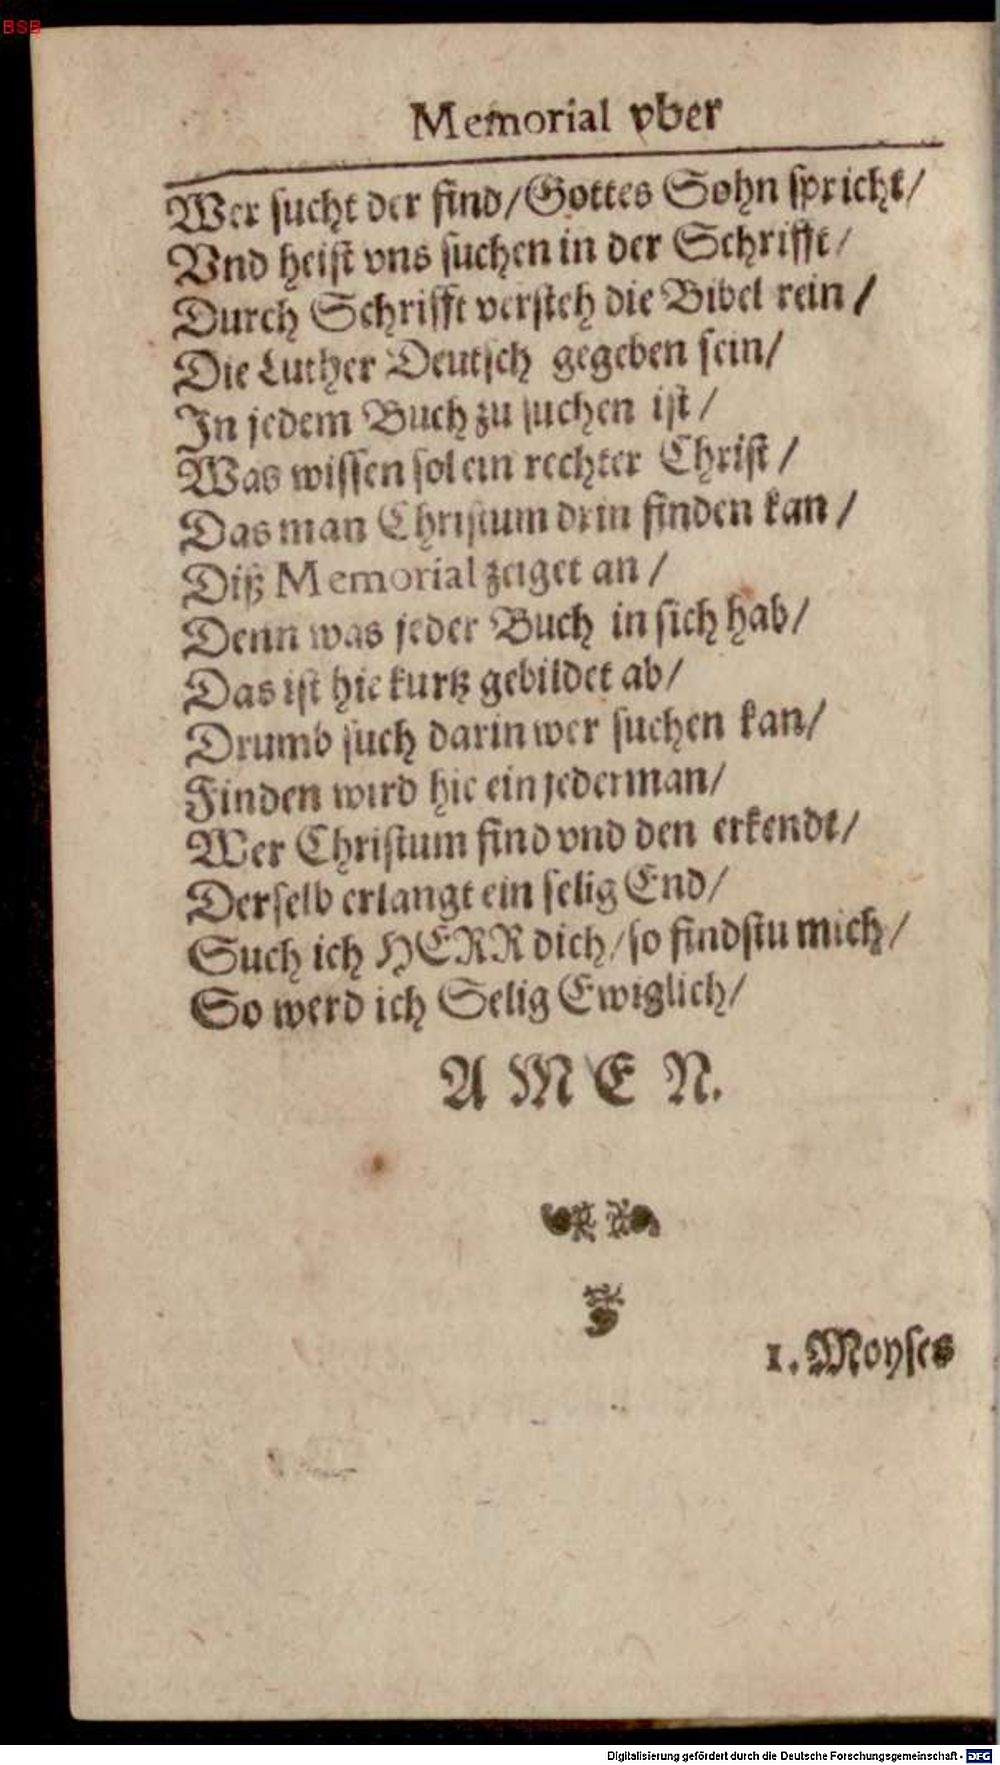 BSB
Memorial vber
Wer sucht der find/Gottes Sohn spricht/
Vnd heist vns suchen in der Schrifft/
Durch Schrifft versteh die Bibel rein/
Die Luther Deutsch gegeben sein/
In jedem Buch zu suchen ist/
Was wissen sol ein rechter Christ/
Das man Christum drin finden kan/
Diß Memorial zeiget an/
Denn was jeder Buch in sich hab/
Das ist hie kurtz gebildet ab/
Drumb such darin wer suchen kan/
Finden wird hie ein jederman/
Wer Christum find vnd den erkendt/
Derselb erlangt ein selig End/
Such ich HERR dich/so findstu mich/
So werd ich Selig Ewiglich/
A M E N.
1. Moyses
Digitalisierung gefördert durch die Deutsche Forschungsgemeinschaft - DFG